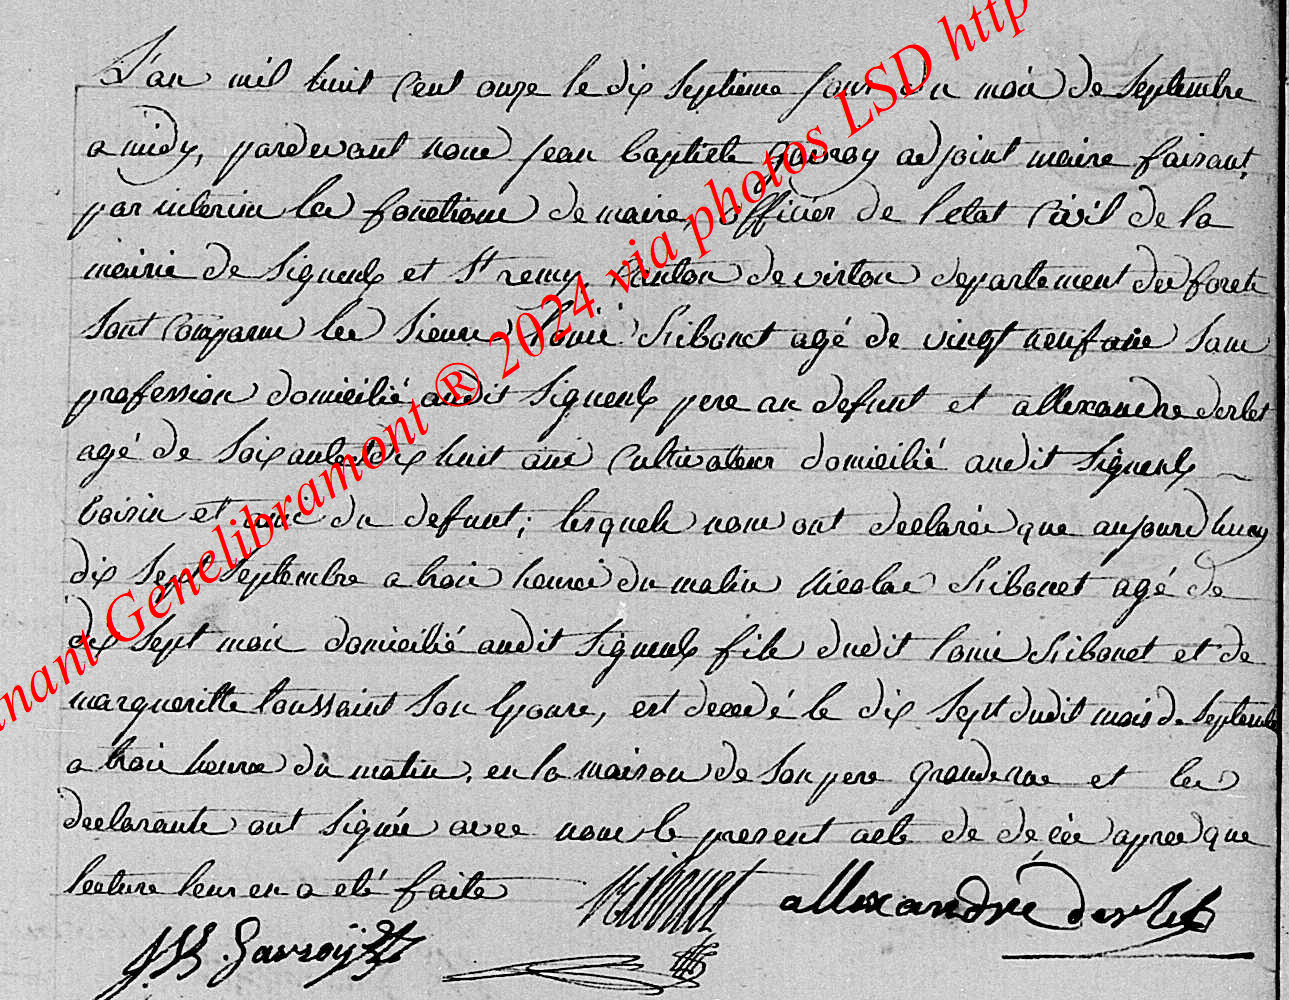 L'an mil huit Cent onze le dix septieme jour du mois de Septembre
a midy, pardevant nous jean baptiste Gavroy adjoint maire faisant
par interim les fonctions de maire, officier de l'etat Civil de la
mairie de Signeulx et St remy, Canton de virton departement des forets
Sont Comparus les Sieurs Louis Ribonet agé de vingt neuf ans Sans
profession domicilié audit Signeulx pere au defunt et allexandre derlet
agé de Soixante dix huit ans Cultivateur domicilié audit Signeulx
Voisin et ami du defunt; lesquels nous ont declarés que aujourdhuy
dix Sept Septembre a trois heures du matin Nicolas Ribonet agé de
dix Sept mois domicilié audit Signeulx fils dudit Louis Ribonet et de
margueritte toussaint Son Epouse, est decedé le dix Sept dudit mois de Septembre
a trois heures du matin, en la maison de Son pere grande rue et les
declarants ont Signés avec nous le present acte de décés apres que
lecture leur en a eté faite
allexandre derlet
J.B. Gavroy
nant Genelibramont ® 2024 via photos LSD http